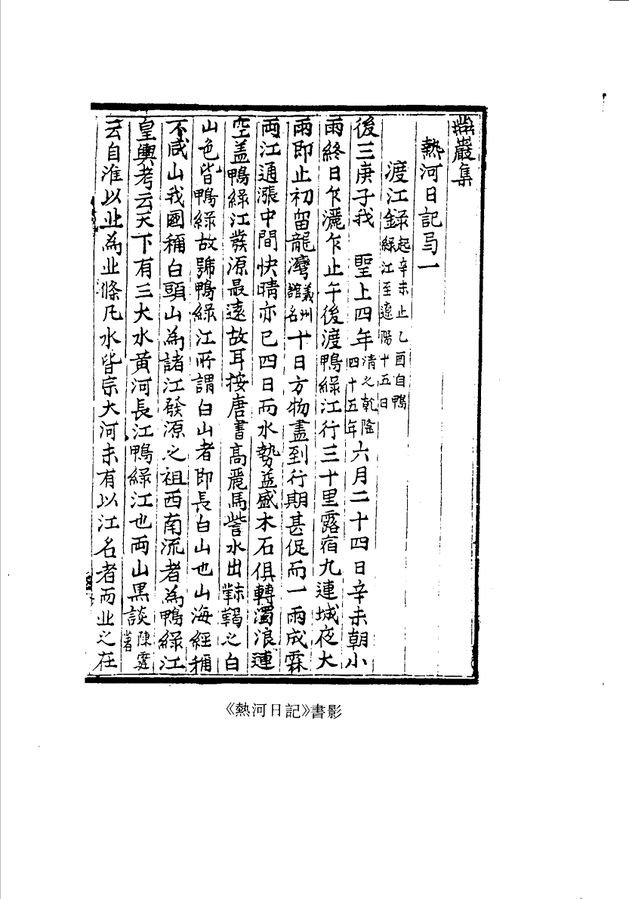 燕巖集
熱河日記㢧一
渡江錄 起辛未止乙酉自鴨綠江至遼陽十五日
後三庚子我 聖上四年清之乾隆四十五年六月二十四日辛未朝小
雨終日乍灑乍止午後渡鴨綠江行三十里露宿九連城夜大
雨即止初留龍灣義州館名十日方物盡到行期甚促而一雨成霖
兩江通漲中間快晴亦已四日而水勢益盛木石俱轉濁浪連
空盖鴨綠江發源最遠故耳按唐書高麗馬訾水出靺鞨之白
山色皆鴨綠故號鴨綠江所謂白山者即長白山也山海經稱
不咸山我國稱白頭山為諸江發源之祖西南流者為鴨綠江
皇輿考云天下有三大水黃河長江鴨綠江也両山黑談陳霆著
云自淮以北為北條凡水皆宗大河未有以江名者而北之在
《熱河日記》書影